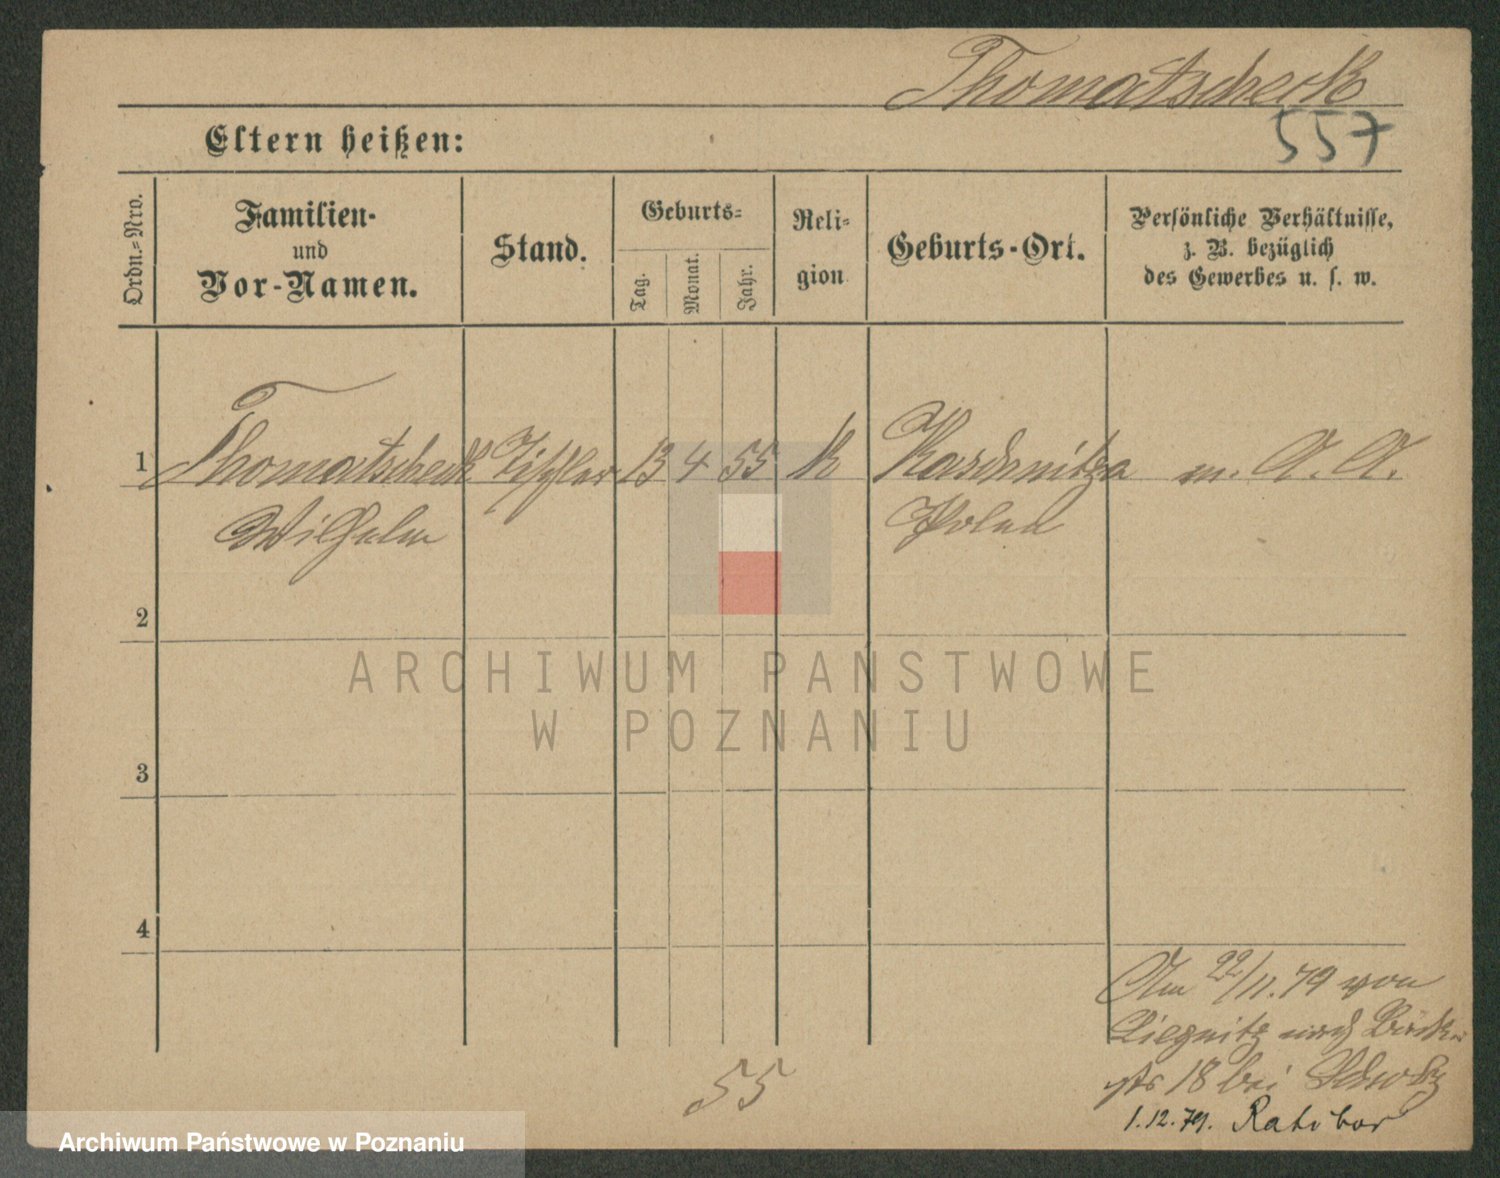 Thomatscheck
557
Eltern heißen:
Ordn.-Nro.
Familien-
und
Vor-Namen.
Stand.
Geburts-
Tag.
Monat.
Jahr.
Reli-
gion
Geburts-Ort.
Persönliche Verhältnisse,
z. B. bezüglich
des Gewerbes u. s. w.
1 Thomatscheck Tischler 13 4 55 k m. A. A.
Wilhelm Polen
2
ARCHIWUM PAŃSTWOWE
W POZNANIU
3
4
Am 22/11.79 von
Liegnitz nach
18 bei
55
1.12.79. Ratibor
Archiwum Państwowe w Poznaniu